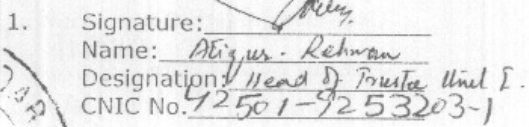 1. Signature:
Name: Atiqur-Rehman
Designation: Head of Trustee Unit I.
CNIC No. 42501-9253203-1